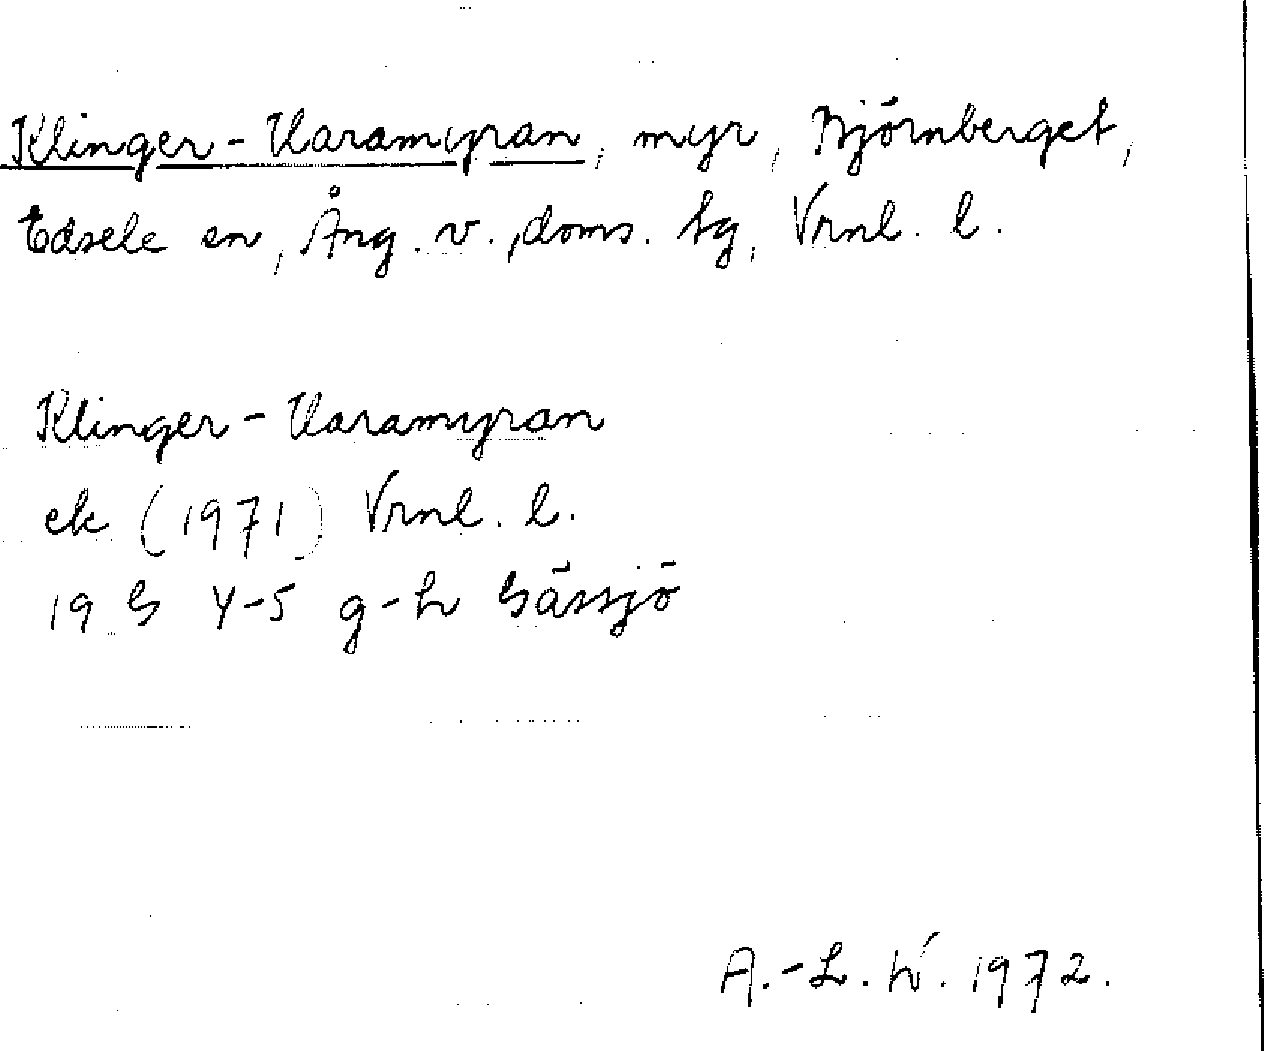 Klinger-Karamyran, myr, Björnberget,
Edsele sn, Ång. v., doms. tg, Vrnl. l.
Klinger-Karamyran
ek (1971) Vrnl. l.
19 G 4-5 g-h Gåssjö
A.-L. W. 1972.